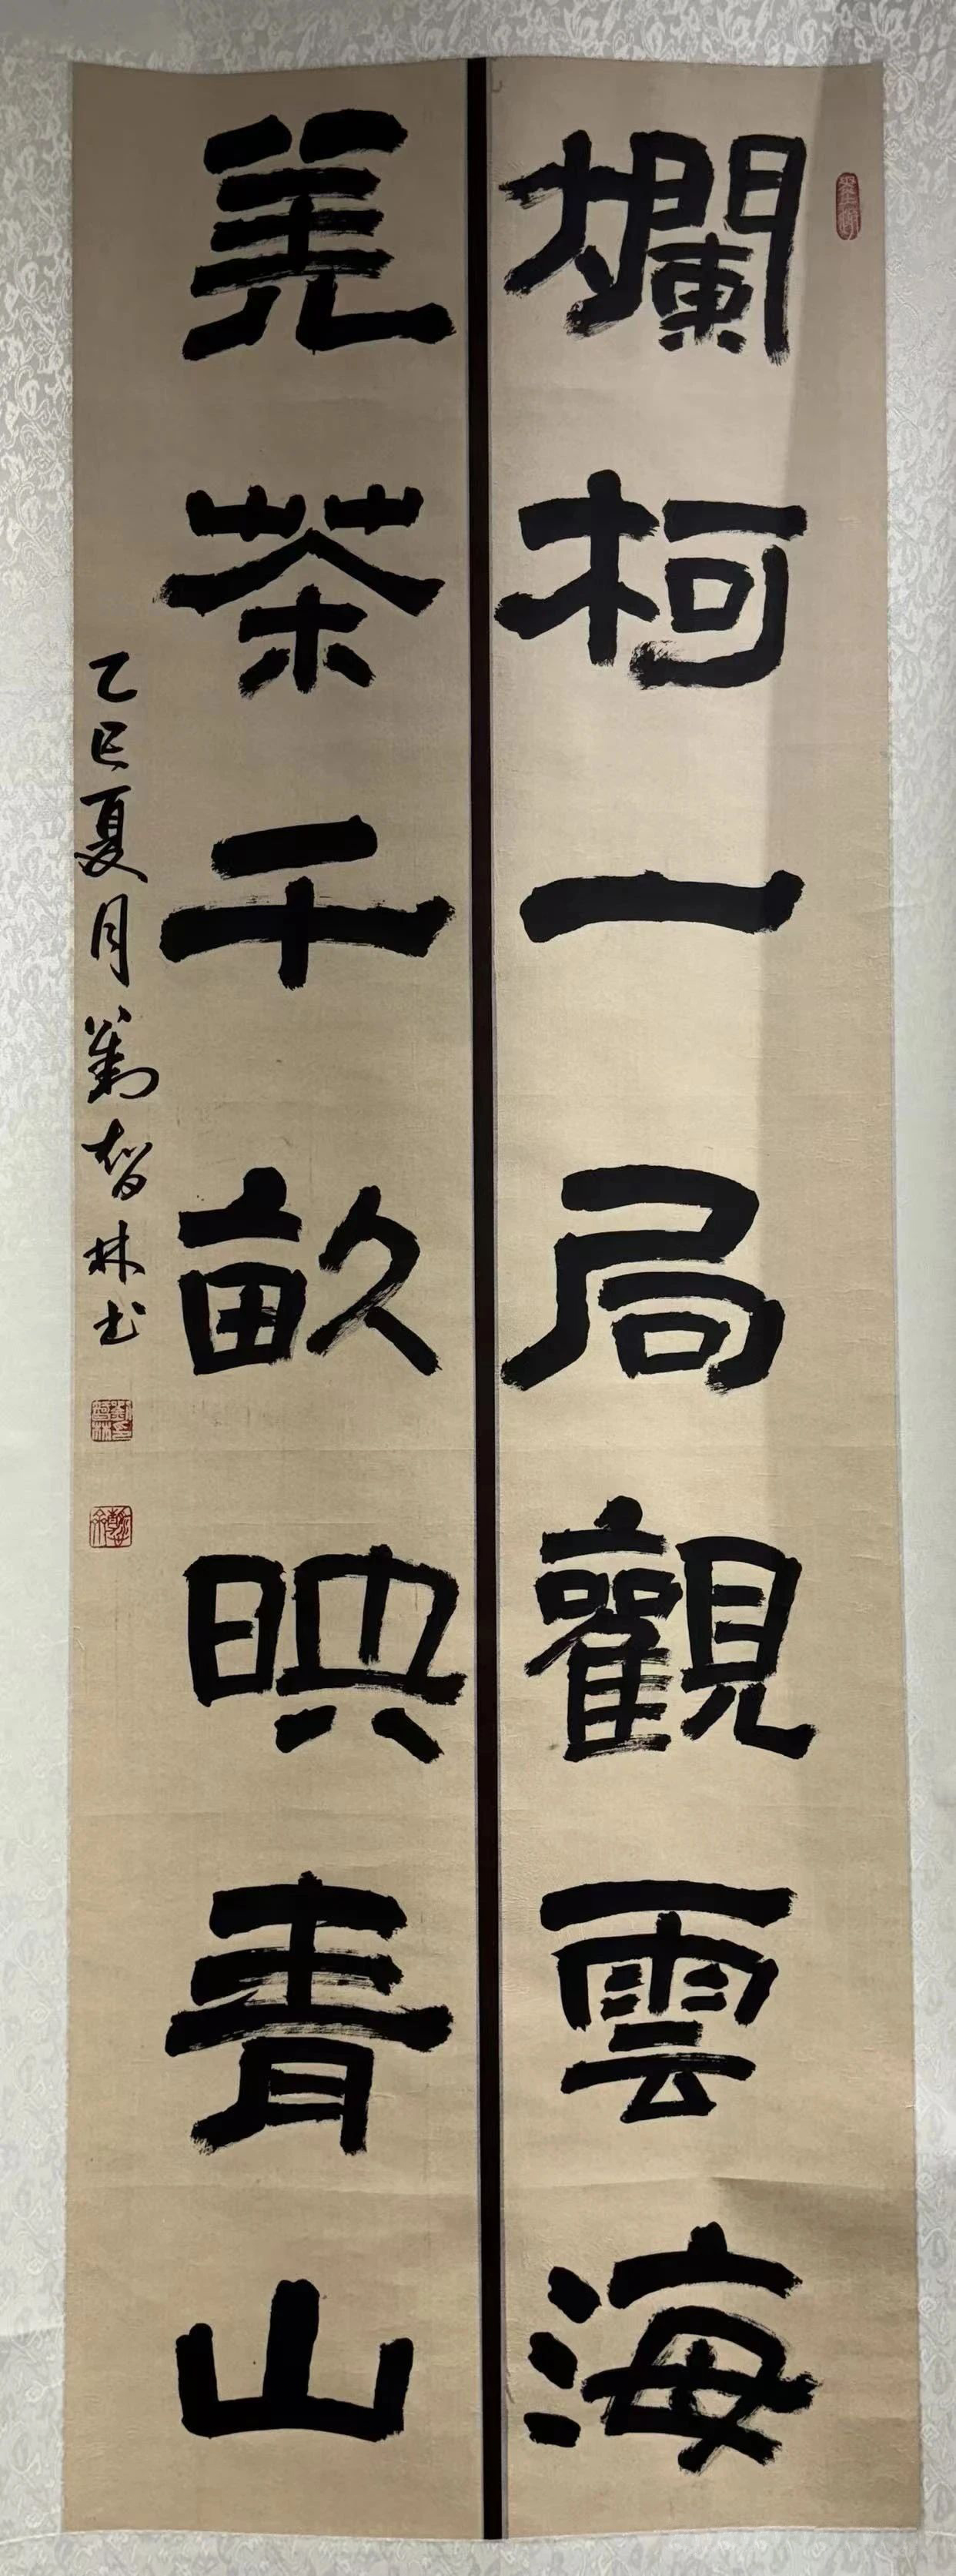 爛柯一局觀雲海
羌茶千畝映青山
乙巳夏月劉智林书